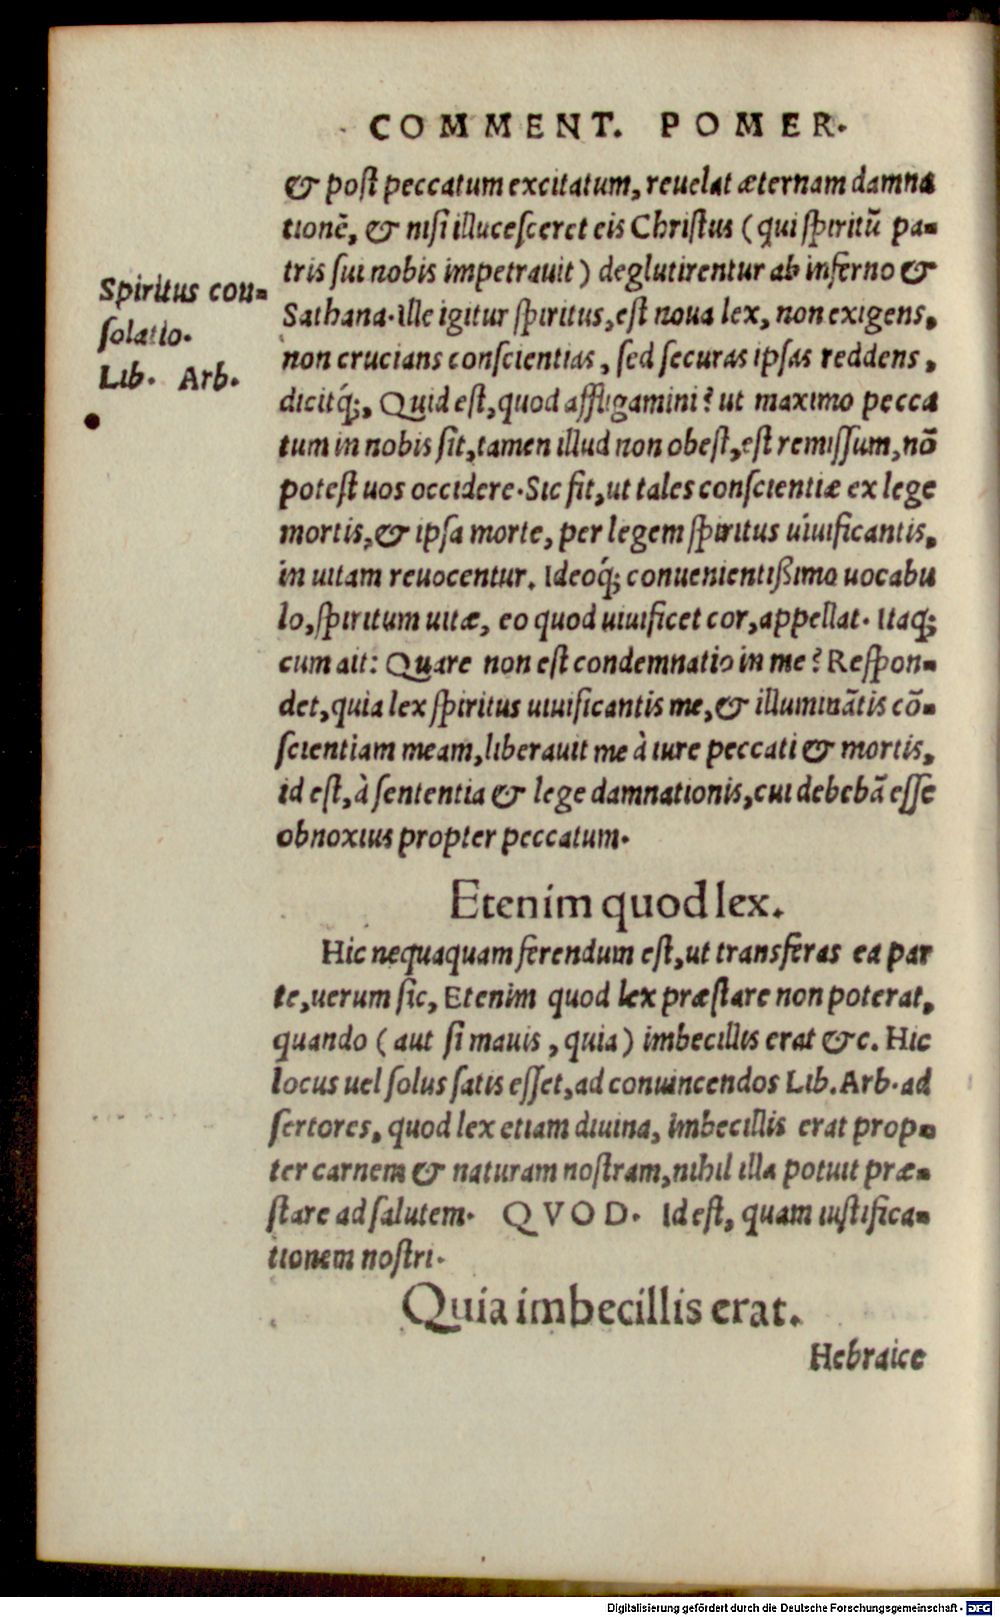 COMMENT. POMER.
& poſt peccatum excitatum, reuelat æternam damna
tionẽ, & niſi illuceſceret eis Chriſtus (qui ſpiritũ pa-
tris ſui nobis impetrauit) deglutirentur ab inferno &
Sathana. Ille igitur ſpiritus, eſt noua lex, non exigens,
non crucians conſcientias, ſed ſecuras ipſas reddens,
dicitq́;, Quid eſt, quod affligamini? ut maximo pecca
tum in nobis ſit, tamen illud non obeſt, eſt remiſſum, nõ
poteſt uos occidere. Sic fit, ut tales conſcientiæ ex lege
mortis, & ipſa morte, per legem ſpiritus uiuificantis,
in uitam reuocentur. Ideoq́; conuenientißimo uocabu
lo, ſpiritum uitæ, eo quod uiuificet cor, appellat. Itaq;
cum ait: Quare non eſt condemnatio in me? Reſpon-
det, quia lex ſpiritus uiuificantis me, & illuminãtis cõ-
ſcientiam meam, liberauit me à iure peccati & mortis,
id eſt, à ſententia & lege damnationis, cui debebã eſſe
obnoxius propter peccatum.
Spiritus con-
ſolatio.
Lib. Arb.
Etenim quod lex.
Hic nequaquam ferendum eſt, ut transferas ea par
te, uerum ſic, Etenim quod lex præſtare non poterat,
quando (aut ſi mauis, quia) imbecillis erat &c. Hic
locus uel ſolus ſatis eſſet, ad conuincendos Lib. Arb. ad
ſertores, quod lex etiam diuina, imbecillis erat prop-
ter carnem & naturam noſtram, nihil illa potuit præ-
ſtare ad ſalutem. QVOD. Id eſt, quam iuſtifica-
tionem noſtri.
Quia imbecillis erat.
Hebraice
Digitalisierung gefördert durch die Deutsche Forschungsgemeinschaft - DFG